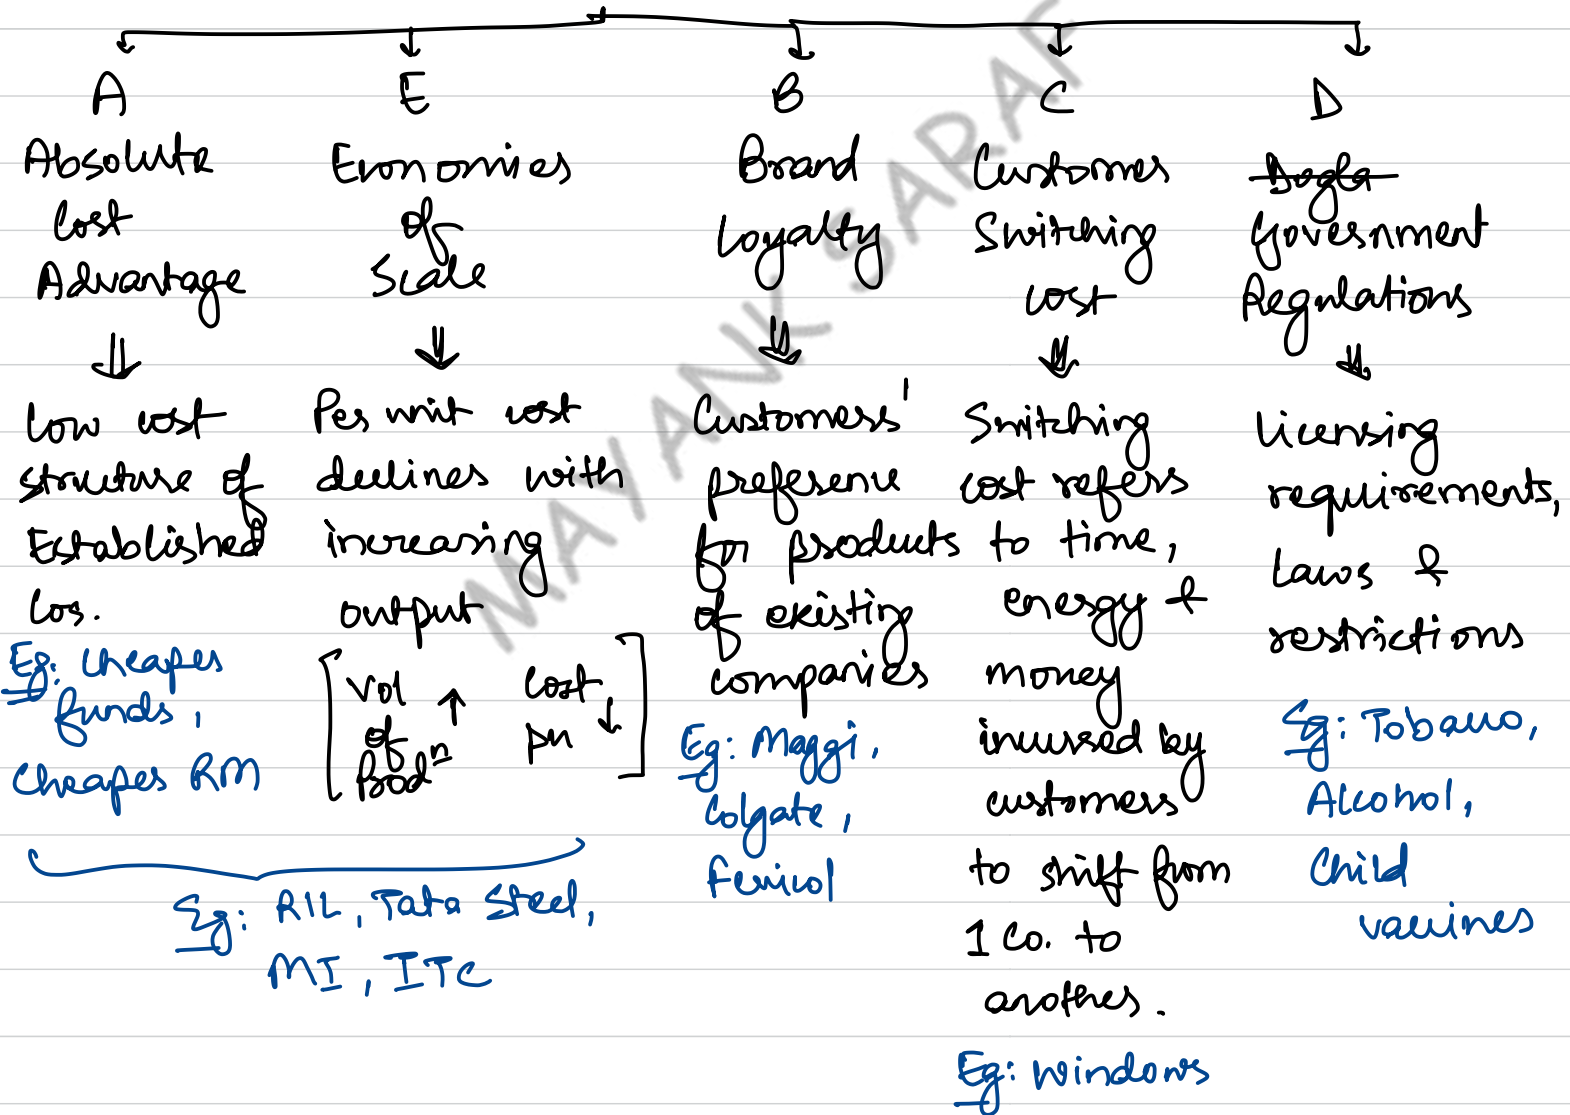 A
Absolute
Cost
Advantage
Low cost
structure of
Established
Cos.
Eg: Cheaper
funds,
Cheaper RM
E
Economies
of
Scale
Per unit cost
declines with
increasing
output
Vol of Prodⁿ ↑ Cost pu ↓
Eg: RIL, Tata Steel,
MI, ITC
B
Brand
Loyalty
Customers'
preference
for products
of existing
companies
Eg: Maggi,
Colgate,
Fevicol
C
Customer
Switching
cost
Switching
cost refers
to time,
energy &
money
incurred by
customers
to shift from
1 Co. to
another.
Eg: Windows
D
Dogla
Government
Regulations
Licensing
requirements,
Laws &
restrictions
Eg: Tobacco,
Alcohol,
Child
vaccines
MAYANK SARAF